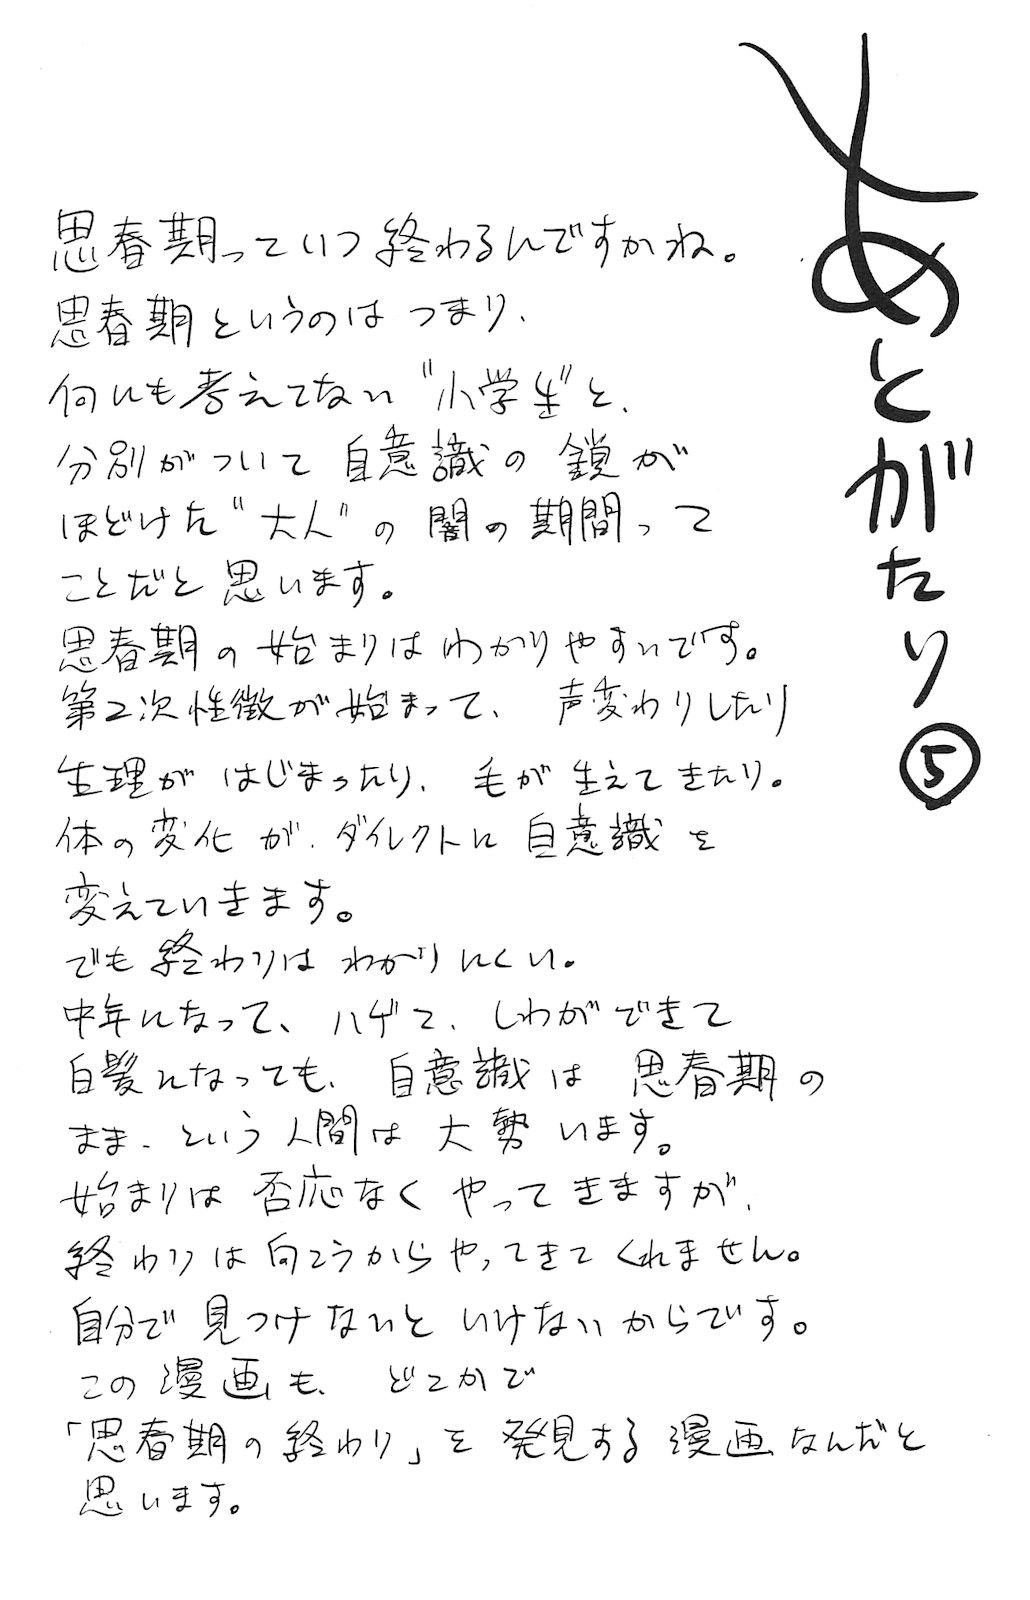 あとがたり⑤
思春期っていつ終わるんですかね。
思春期というのは つまり、
何にも考えてない"小学生"と、
分別がついて 自意識の 鎖が
ほどけた"大人"の 闇の期間って
ことだと思います。
思春期の始まりは わかりやすいです。
第2次性徴が始まって、 声変わりしたり
生理が はじまったり、 毛が 生えてきたり。
体の変化が、ダイレクトに 自意識を
変えていきます。
でも終わりは わかりにくい。
中年になって、ハゲて、しわができて
白髪になっても、 自意識は 思春期の
まま、という人間は 大勢 います。
始まりは 否応なく やってきますが、
終わりは向こうからやってきてくれません。
自分で 見つけないと いけないからです。
この漫画も、 どこかで
「思春期の終わり」を 発見する 漫画なんだと
思います。